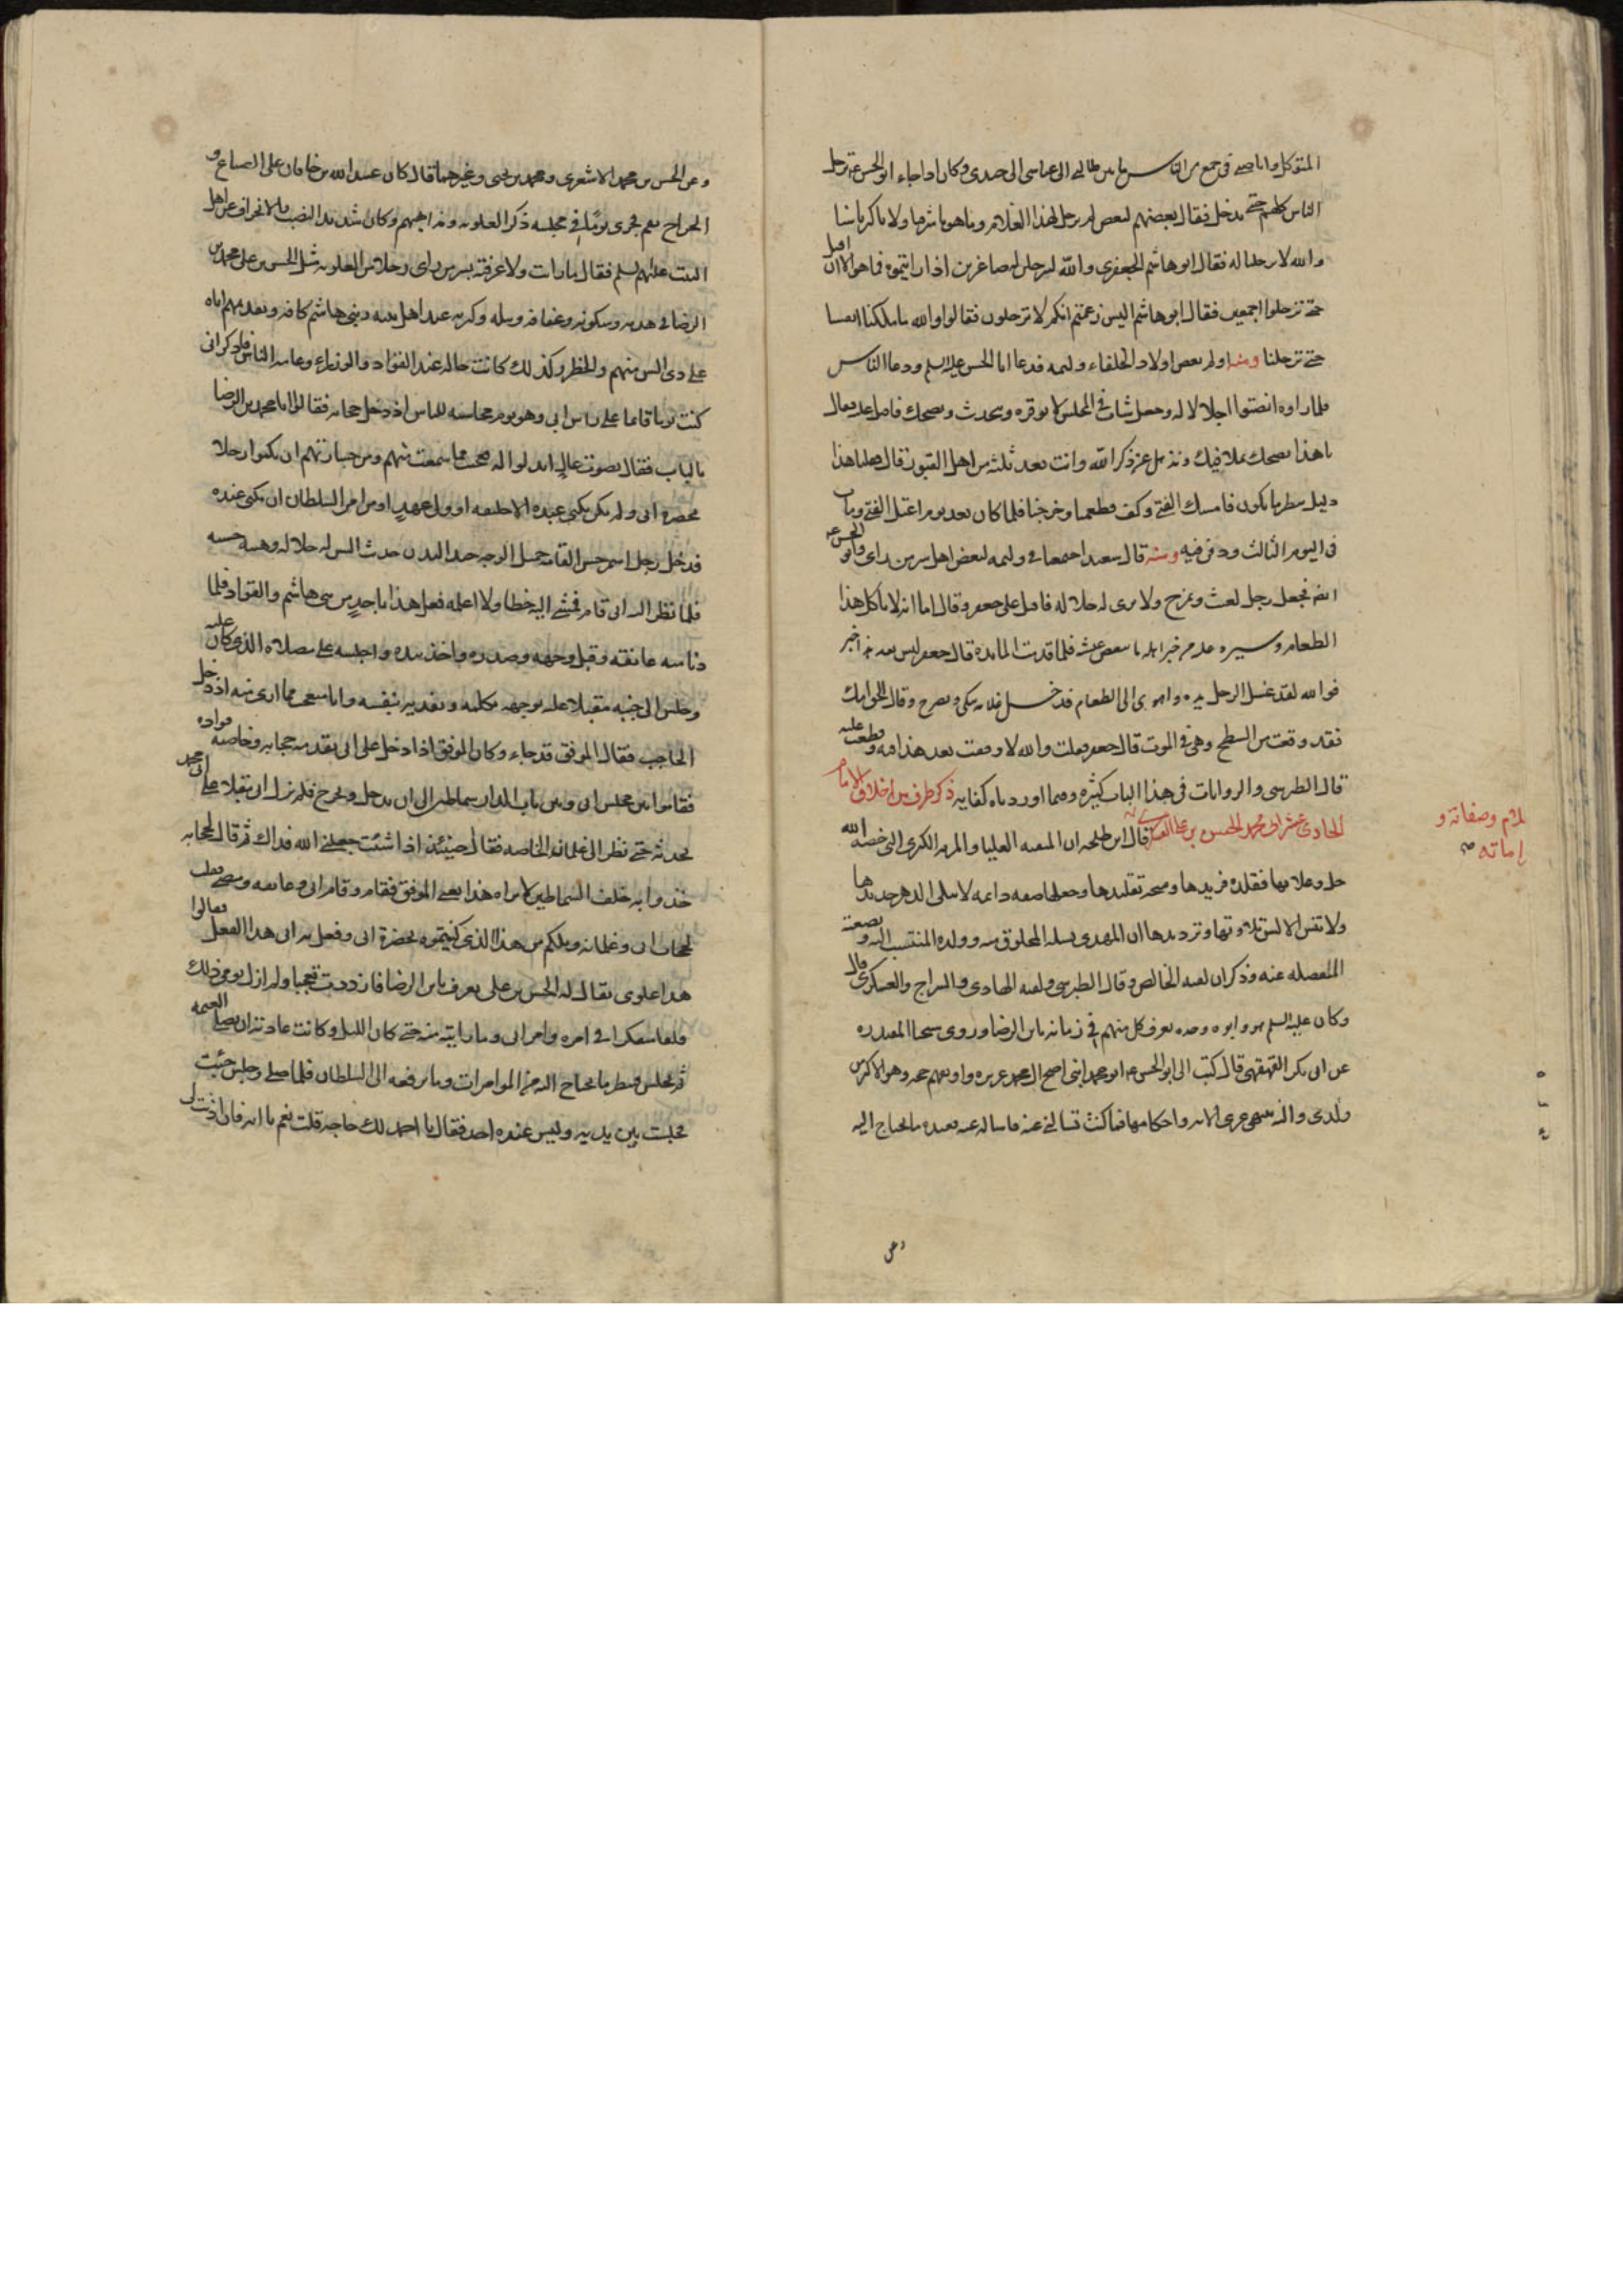 المتوكل وانا صبي في جمع من الناس ما بين طالبي الى عباسي الى جندي وكان اذا جاء ابو الحسن ع ترجل
الناس كلهم حتى يدخل فقال بعضهم لبعض لم نترجل لهذا الغلام وما هو باشرفنا ولا باكبرنا سنا
والله لا ترجلنا له فقال ابو هاشم الجعفري والله لترجلن له صاغرين اذا رايتموه فما هو الا ان اقبل
حتى ترجلوا اجمعين فقال ابو هاشم اليس زعمتم انكم لا ترجلون فقالوا والله ما ملكنا انفسنا
حتى ترجلنا ومنها اولم بعض اولاد الخلفاء وليمه فدعا ابا الحسن عليه السلم ودعا الناس
فلما راوه انصتوا اجلالا له وجعل شاب في المجلس لا يوقره ويتحدث ويضحك فاقبل عليه فقال
يا هذا تضحك بملا فيك وتذهل عن ذكر الله وانت بعد ثلثه من اهل القبور قال فقلنا هذا
دليل ننظر ما يكون فامسك الفتى وكف وطعمنا وخرجنا فلما كان بعد يوم اعتل الفتى ومات
في اليوم الثالث ودفن فيه ومنه قال سعيد اجتمعنا في وليمه لبعض اهل سر من راى وابو الحسن ع
فجعل رجل يعبث ويمزح ولا يرى له جلاله فاقبل على جعفر وقال اما انه لا ياكل هذا
الطعام وسيرد عليه من خبر اهله ما ينغص عيشه فلما قدمت المائده قال جعفر ليس بعد هذا خبر
فوالله لقد غسل الرجل يده واهوى الى الطعام فدخل غلامه يبكي ويصرخ وقال الحق امك
فقد وقعت من السطح وهي في الموت قال جعفر فقلت والله لا وقفت بعد هذا فيه وقطعت عليه
قال الطبرسي والروايات في هذا الباب كثيره وفيما اوردناه كفايه ذكر طرف من اخلاق الامام
الحادي عشر ابي محمد الحسن بن علي العسكري قال ابن طلحه ان المنقبه العليا والمزيه الكبرى التي خصه الله
جل وعلا بها فقلده فريدها ومنحه تقليدها وجعلها صفه دائمه لا يبلى الدهر جديدها
ولا تنسى الالسن تلاوتها وترديدها ان المهدي نسله المخلوق منه وولده المنتسب اليه وبضعته
المنفصله عنه وذكر ان لقبه الخالص وقال الطبرسي ولقبه الهادي والسراج والعسكري قال
وكان عليه السلم هو وابوه وجده يعرف كل منهم في زمانه بابن الرضا وروى شيخنا المفيد
عن ابي بكر الفهفهي قال كتب الي ابو الحسن ع ابو محمد ابني اصح ال محمد غريزه واوثقهم حجه وهو الاكبر من
ولدي واليه ينتهي عرى الامامه واحكامها فما كنت تسالني عنه فاساله عنه فعنده ما يحتاج اليه
وصفاته و
امامته صح
وعن
وعن الحسن بن محمد الاشعري ومحمد بن يحيى وغيرهما قال كان احمد بن عبيد الله بن خاقان على الضياع و
الخراج بقم فجرى يوما في مجلسه ذكر العلويه ومذاهبهم وكان شديد النصب والانحراف عن اهل
البيت عليهم السلم فقال ما رايت ولا عرفت بسر من راى رجلا من العلويه مثل الحسن بن علي بن محمد بن
الرضا في هديه وسكونه وعفافه ونبله وكرمه عند اهل بيته وبني هاشم كافه وتقديمهم اياه
على ذوي السن منهم والخطر وكذلك كانت حاله عند القواد والوزراء وعامه الناس فاذكر اني
كنت يوما قائما على راس ابي وهو يوم مجلسه للناس اذ دخل حجابه فقالوا ابو محمد بن الرضا
بالباب فقال بصوت عال ايذنوا له فتعجبت مما سمعت منهم ومن جسارتهم ان يكنوا رجلا
بحضره ابي ولم يكن يكنى عنده الا خليفه او ولي عهد او من امر السلطان ان يكنى عنده
فدخل رجل اسمر حسن القامه جميل الوجه جيد البدن حدث السن له جلاله وهيئه حسنه
فلما نظر اليه ابي قام فمشى اليه خطا ولا اعلمه فعل هذا باحد من بني هاشم والقواد فلما
دنا منه عانقه وقبل وجهه وصدره واخذ بيده واجلسه على مصلاه الذي كان عليه
وجلس الى جنبه مقبلا عليه بوجهه يكلمه ويفديه بنفسه وانا متعجب مما ارى منه اذ دخل
الحاجب فقال الموفق قد جاء وكان الموفق اذا دخل على ابي يقدمه حجابه وخاصه قواده
فقاموا بين مجلس ابي وبين باب الدار سماطين الى ان يدخل ويخرج فلم يزل ابي مقبلا على ابي محمد
يحدثه حتى نظر الى غلمانه الخاصه فقال حينئذ اذا شئت جعلني الله فداك ثم قال لحجابه
خذوا به خلف السماطين لا يراه هذا يعني الموفق فقام وقام ابي وعانقه ومضى فقلت
لحجاب ابي وغلمانه ويلكم من هذا الذي كنيتموه بحضرة ابي وفعل به ابي هذا الفعل فقالوا
هذا علوي يقال له الحسن بن علي يعرف بابن الرضا فازددت تعجبا ولم ازل يومي ذلك
قلقا متفكرا في امره وامر ابي وما رايته منه حتى كان الليل وكانت عادته ان يصلي العتمه
ثم يجلس فينظر ما يحتاج اليه من الموامرات وما يرفعه الى السلطان فلما صلى وجلس جئت
فجلست بين يديه وليس عنده احد فقال يا احمد لك حاجه قلت نعم يا ابه فان اذنت لي